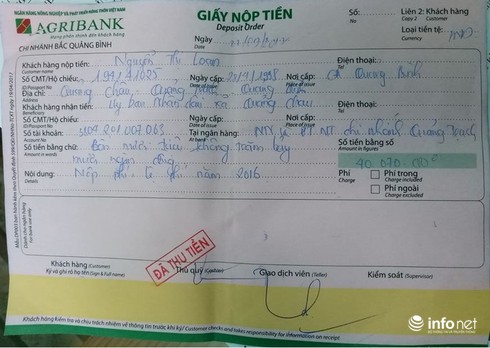 NGÂN HÀNG NÔNG NGHIỆP VÀ PHÁT TRIỂN NÔNG THÔN VIỆT NAM
AGRIBANK
Mang phồn thịnh đến khách hàng
CHI NHÁNH BẮC QUẢNG BÌNH
GIẤY NỘP TIỀN
Deposit Order
Ngày
Date
Số:
No
Liên 2: Khách hàng
Copy 2 Customer
Loại tiền tệ: VND
Currency
Khách hàng nộp tiền: Nguyễn Thị Loan
Customer name
Điện thoại:
Tel
Số CMT/Hộ chiếu:
ID/Passport No
Ngày cấp:
Date of Issue
Nơi cấp: CA Quảng Bình
Place of Issue
Địa chỉ: Quảng Châu - Quảng Trạch, Quảng Bình
Address
Người thụ hưởng: Ủy ban nhân dân xã Quảng Châu
Beneficiary
Điện thoại:
Tel
Số CMT/Hộ chiếu:
ID/Passport No
Ngày cấp:
Date of Issue
Nơi cấp:
Place of Issue
Số tài khoản: 3109201007063
Account No
Tại ngân hàng: chi nhánh Quảng Trạch
At bank
Số tiền bằng chữ: Bốn mươi triệu không trăm bảy
Amount in words
mươi ngàn đồng
Số tiền bằng số
Amount in figures
40.070.000
Nội dung: Nộp phí, lệ phí năm 2016
Remarks
Phí
Charge
Phí trong
Charge included
Phí ngoài
Charge excluded
Dành cho ngân hàng
For bank use only
ĐÃ THU TIỀN
Khách hàng (Customer)
Ký và ghi rõ họ tên (Sign & Full name)
Thủ quỹ (Cashier)
Giao dịch viên (Teller)
Kiểm soát (Supervisor)
Khách hàng kiểm tra và chịu trách nhiệm về thông tin trước khi ký/ Customer checks and takes responsibility for information on receipt
infonet